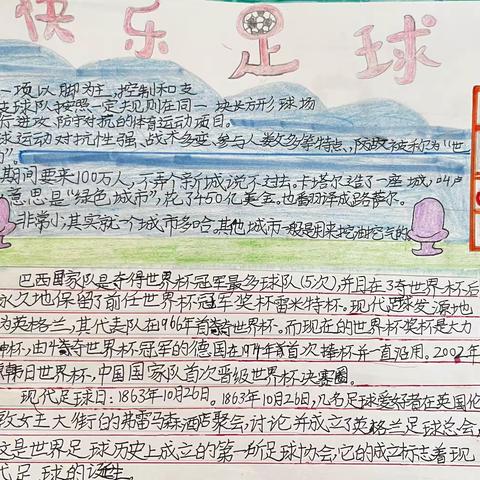 快乐足球
一项以脚为主,控制和支
支球队按照一定规则在同一块长方形球场
行进攻、防守对抗的体育运动项目。
球运动对抗性强、战术多变、参与人数多等特点,故被称为“世
”
期间要来100万人,不弄个新城说不过去。卡塔尔造了一座城,叫卢
意思是“绿色城市”,花了450亿美金。也翻译成路萨尔。
非常小,其实就一个城市多哈。其他城市一般是用来挖油挖气的
巴西国家队是夺得世界杯冠军最多球队(5次)并且在3夺世界杯后
永久地保留了前任世界杯冠军奖杯雷米特杯。现代足球发源地
为英格兰,其代表队在966年首夺世界杯。而现在的世界杯奖杯是大力
神杯,由4夺世界杯冠军的德国在1974年首次捧杯并一直沿用。2002年
韩日世界杯,中国国家队首次晋级世界杯决赛圈。
现代足球日:1863年10月26日。1863年10月26日,几名足球爱好者在英国伦
敦女王大街的弗雷马森酒店聚会,讨论并成立了英格兰足球总会,
这是世界足球历史上成立的第一个足球协会,它的成立标志着现
代足球的诞生。